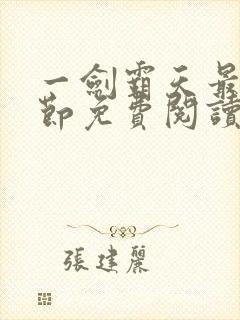 一劍霸天最
節免費閱讀
張建麗